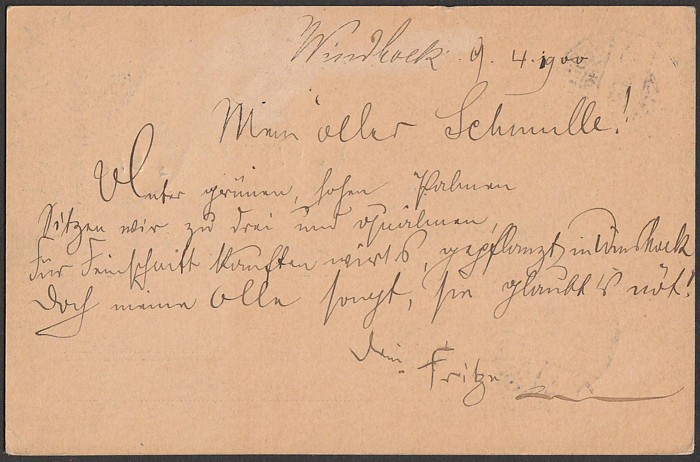 Windhoek. 9. 4. 1900
Mein oller Schmulle!
Unter grünen, hohen Palmen
Sitzen wir zu drei und qualmen,
Für Feinschnitt kauften wirs, gepflanzt in Windhoek
Doch meine Olle sagt, sie glaubt's nöt!
Dein Fritze.